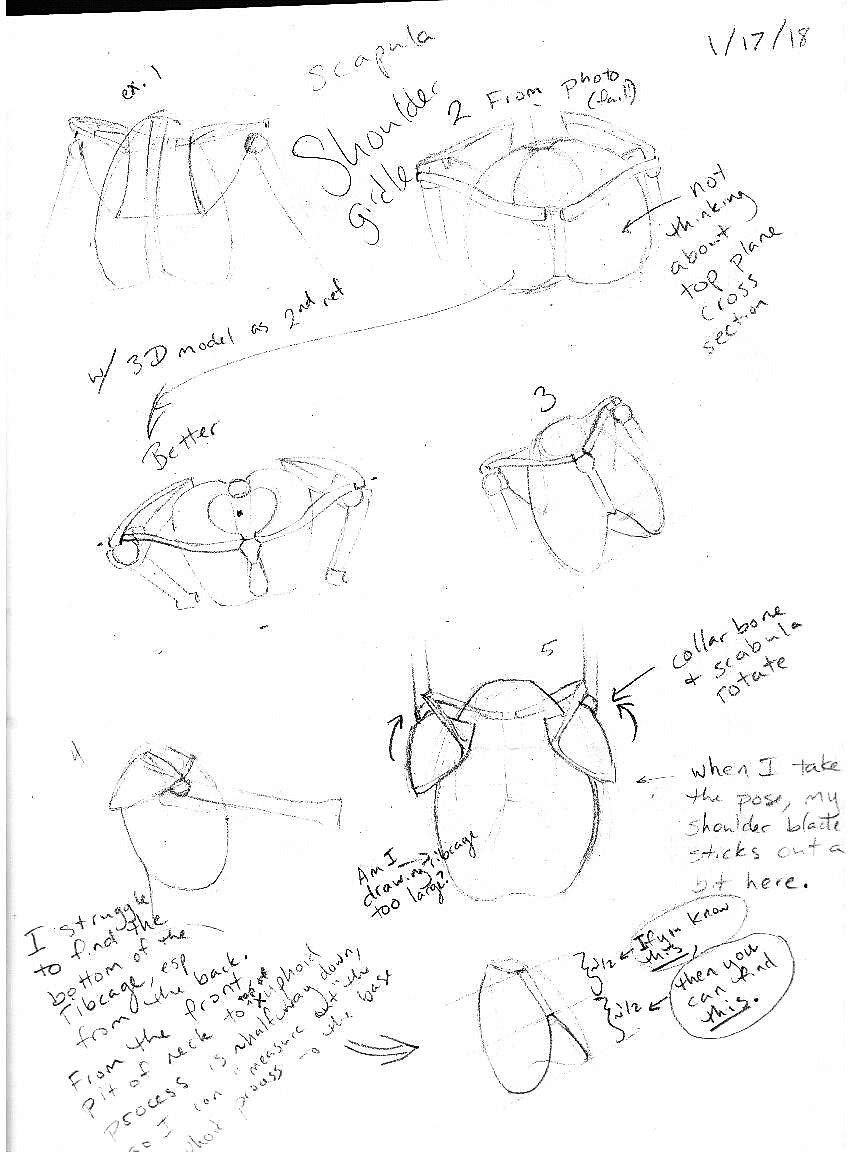 1/17/18
ex. 1
scapula
Shoulder
girdle
2 From photo
(fail)
not
thinking
about
top plane
cross
section
w/ 3D model as 2nd ref
Better
3
5
collar bone
+ scabula
rotate
4
when I take
the pose, my
shoulder blade
sticks out a
bit here.
Am I
drawing ribcage
too large?
I struggle
to find the
bottom of the
ribcage, esp
from the back.
From the front,
pit of neck to top of xiphoid
process is ~halfway down,
so I can "measure out" the
xiphoid process to the base
~1/2
If you know
this,
~1/2
then you
can find
this.